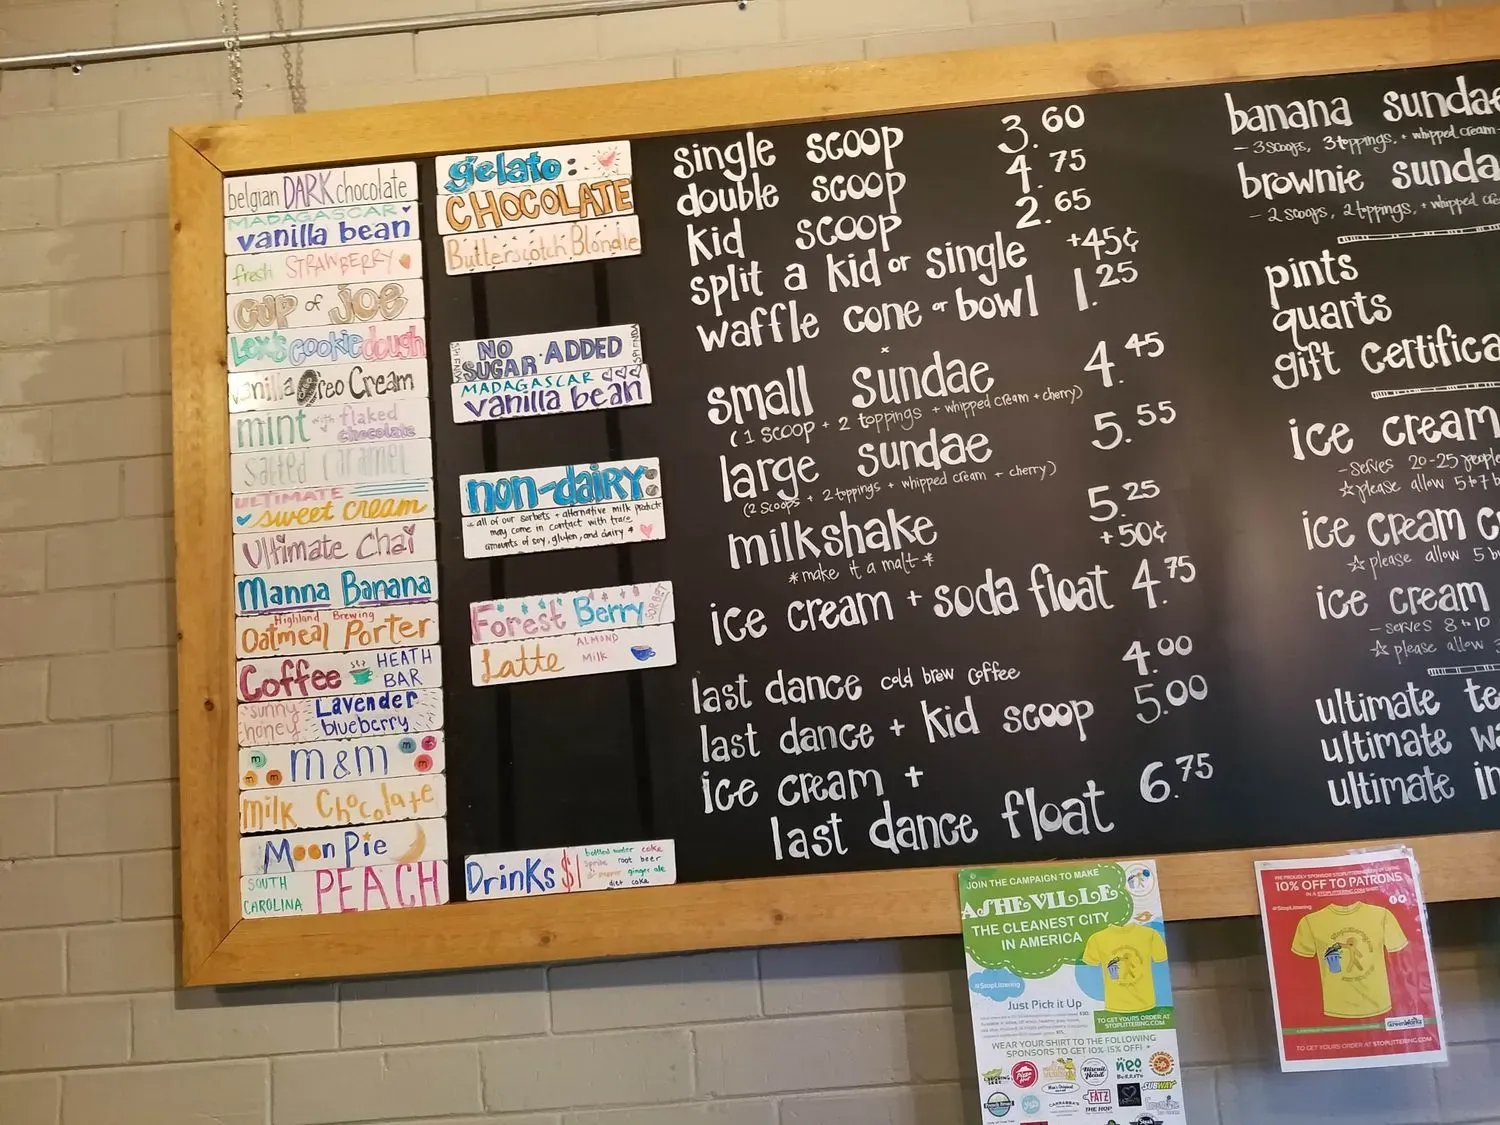 belgian DARK chocolate
MADAGASCAR
vanilla bean
fresh STRAWBERRY
CUP of JOE
Lex's cookie dough
vanilla Oreo Cream
mint with flaked
chocolate
Salted Caramel
ULTIMATE
sweet cream
Ultimate Chai
Manna Banana
Highland Brewing
Oatmeal Porter
Coffee HEATH
BAR
sunny Lavender
honey blueberry
m m&m m
m m
Milk Chocolate
Moon Pie
SOUTH
CAROLINA PEACH
gelato:
CHOCOLATE
Butterscotch Blondie
NO
SUGAR • ADDED
SPLENDA
MADAGASCAR
vanilla bean
non-dairy:
* all of our sorbets + alternative milk products
may come in contact with trace
amounts of soy, gluten, and dairy *
Forest Berry SORBET
Latte ALMOND
MILK
Drinks $1
bottled water coke
sprite root beer
dr pepper ginger ale
diet coke
single scoop 3.60
double scoop 4.75
kid scoop 2.65
split a kid or single +45¢
waffle cone or bowl 1.25
small sundae 4.45
(1 scoop + 2 toppings + whipped cream + cherry)
large sundae 5.55
(2 scoops + 2 toppings + whipped cream + cherry)
milkshake 5.25
*make it a malt* +50¢
ice cream + soda float 4.75
last dance cold brew coffee 4.00
last dance + kid scoop 5.00
ice cream +
last dance float 6.75
banana sundae
- 3 scoops, 3 toppings, + whipped cream -
brownie sunda
- 2 scoops, 2 toppings, + whipped cre
pints
quarts
gift certifica
ice cream
- serves 20-25 people
☆ please allow 5 to 7 b
ice cream c
☆ please allow 5 b
ice cream
- serves 8 to 10
☆ please allow 3
ultimate te
ultimate wa
ultimate in
JOIN THE CAMPAIGN TO MAKE
ASHEVILLE
THE CLEANEST CITY
IN AMERICA
#StopLittering
Just Pick it Up
TO GET YOURS ORDER AT
STOPLITTERING.COM
WEAR YOUR SHIRT TO THE FOLLOWING
SPONSORS TO GET 10%-15% OFF! *
Pizza Hut
Biscuit Head
neo
BURRITO
FATZ
SUBWAY
THE HOP
CARRABBA'S
WE PROUDLY SPONSOR STOPLITTERING.COM BY GIVING
10% OFF TO PATRONS
IN A STOPLITTERING.COM SHIRT
#StopLittering
GreenWorks
TO GET YOURS ORDER AT STOPLITTERING.COM